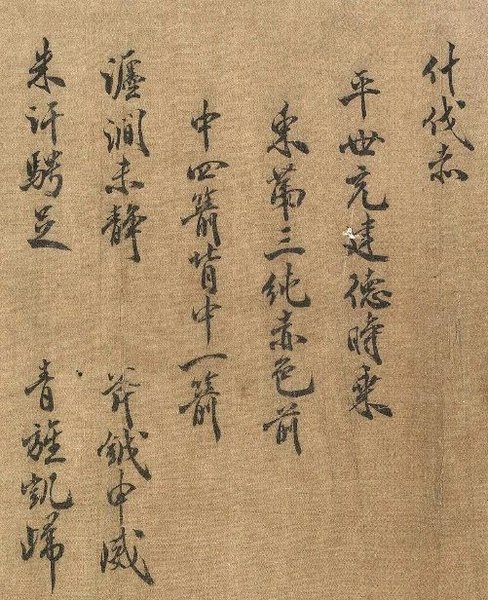 什伐赤
平世充建德時乘
東苐三純赤色前
中四箭背中一箭
瀍澗未靜 斧鉞申威
朱汗騁足 青旌凱歸